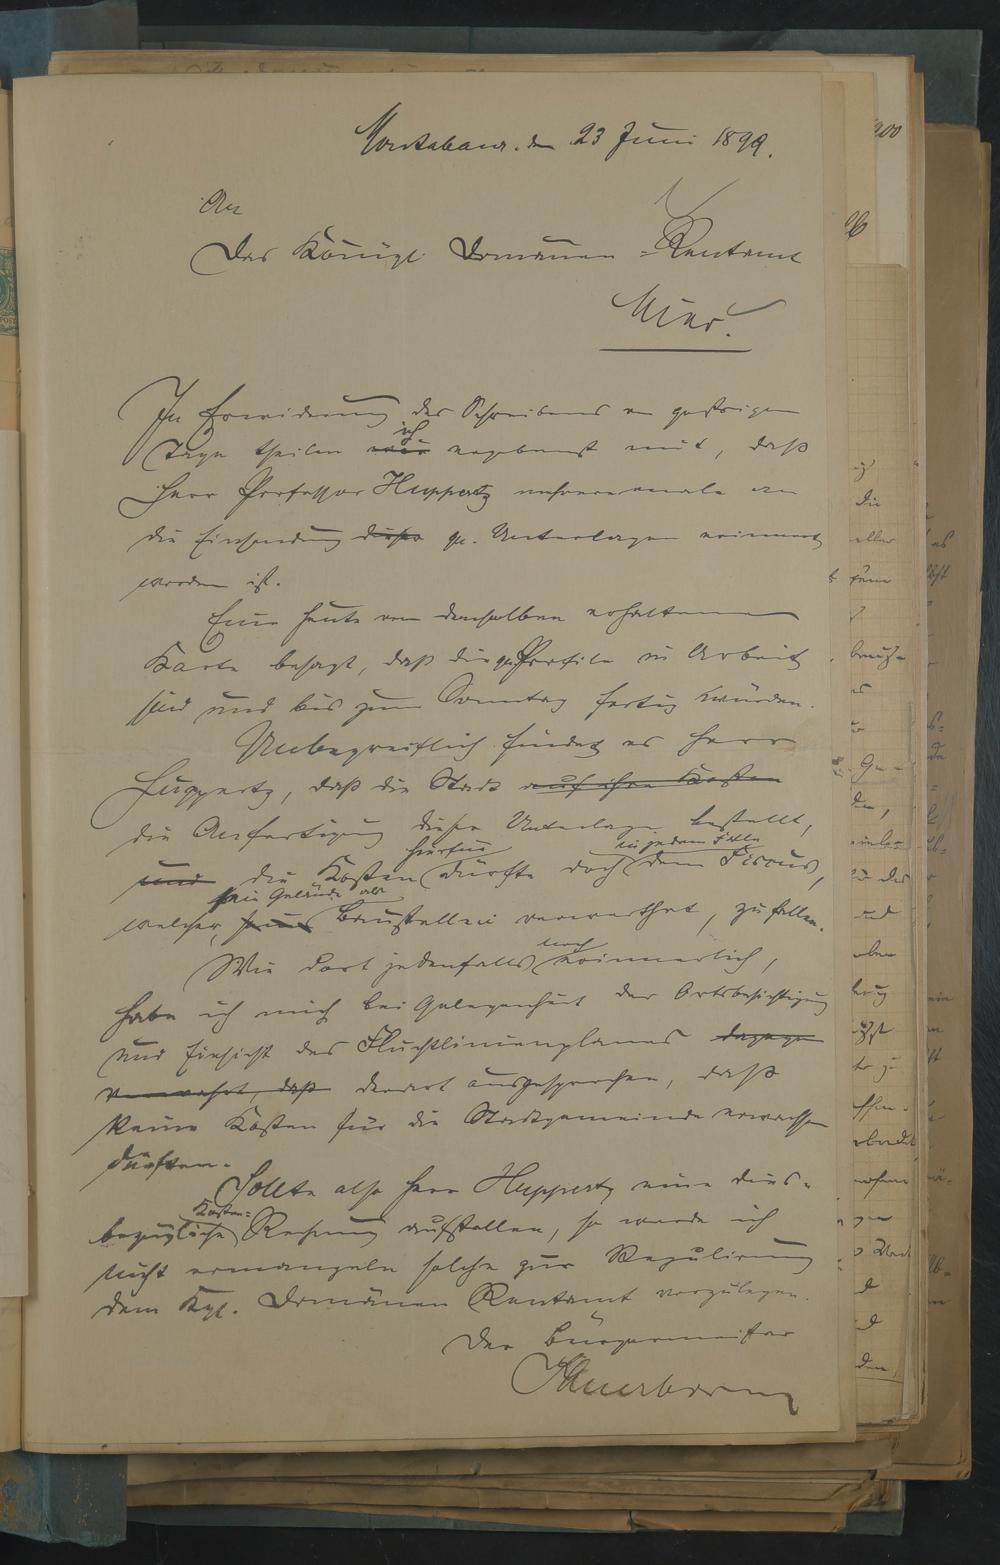 Montabaur. den 23 Juni 1899.
An
Das Königl. Domänen-Rentamt
Hier.
In Erwiderung des Schreibens vom gestrigen
Tage theilen wir ich ergebenst mit, daß
Herr Professor Huppertz mehreremale an
die Einsendung dieser qu. Unterlagen erinnert
worden ist.
Eine heute von demselben erhaltene
Karte besagt, daß die qu. Profile in Arbeit
sind und bis zum Sonntag fertig würden.
Unbegreiflich findet es Herr
Huppertz, daß die Stadt auf ihre Kosten
die Anfertigung dieser Unterlagen bestellt,
und die Kosten hierfür dürfte doch in jedem Falle dem Fiscus,
welcher, sein Gelände als Baustellen verwerthet, zu fallen.
Wie dort jedenfalls noch erinnerlich,
habe ich mich bei Gelegenheit der Ortsbesichtigung
und Einsicht des Fluchtlinienplanes dagegen
verwahrt, daß derart ausgesprochen, daß
keine Kosten für die Stadtgemeinde erwachsen
dürften.
Sollte also Herr Huppertz eine dies-
bezügliche Kosten- Rechnung aufstellen, so werde ich
nicht ermangeln solche zur Regulirung
dem Kgl. Domänen Rentamt vorzulegen.
Der Bürgermeister